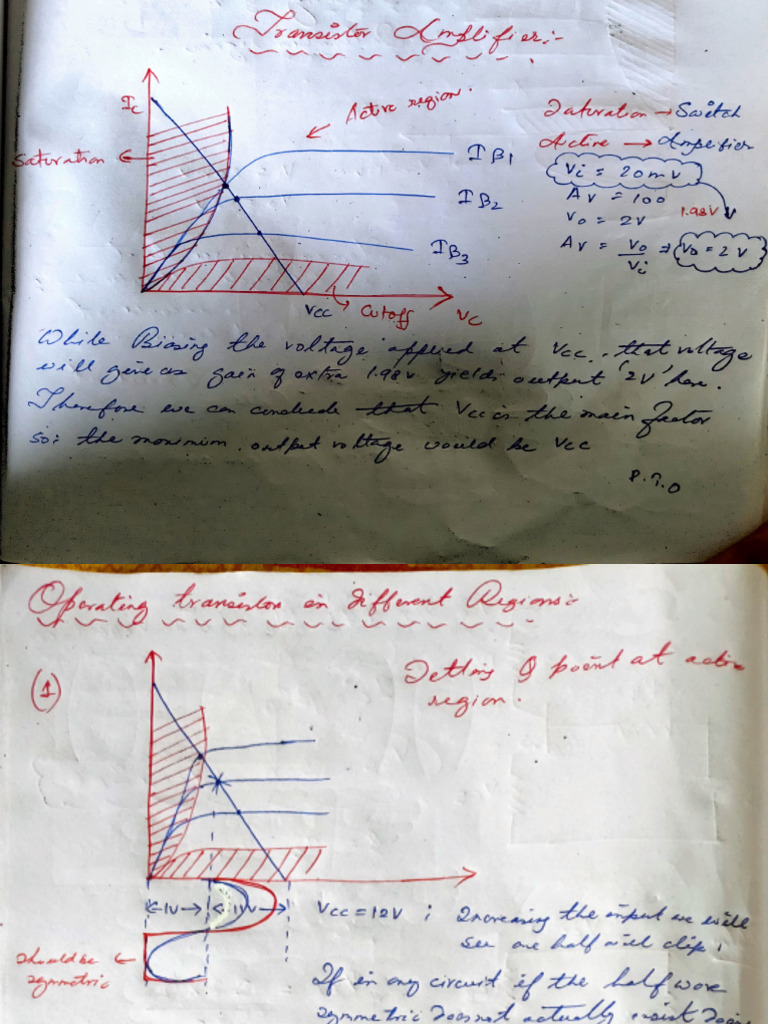 Transistor Amplifier:-
Ic
Active region.
Saturation
IB1
IB2
IB3
Vcc
Cutoff
Vc
Saturation → Switch
Active → Amplifier
Vi = 20mV
AV = 100
Vo = 2V
1.98V
AV = Vo/Vi ⇒ Vo = 2V
While Biasing the voltage applied at Vcc, that voltage
will give us gain of extra 1.98V yields output '2V' here.
Therefore we can conclude that Vcc is the main factor
so: the maximum output voltage would be Vcc
P.T.O
Operating transistor in different Regions:-
(1)
Setting Q point at active
region.
1V
11V
Vcc = 12V ; Increasing the input we will
see one half will clip;
Should be
symmetric
If in any circuit if the half wave
symmetric does not actually exist